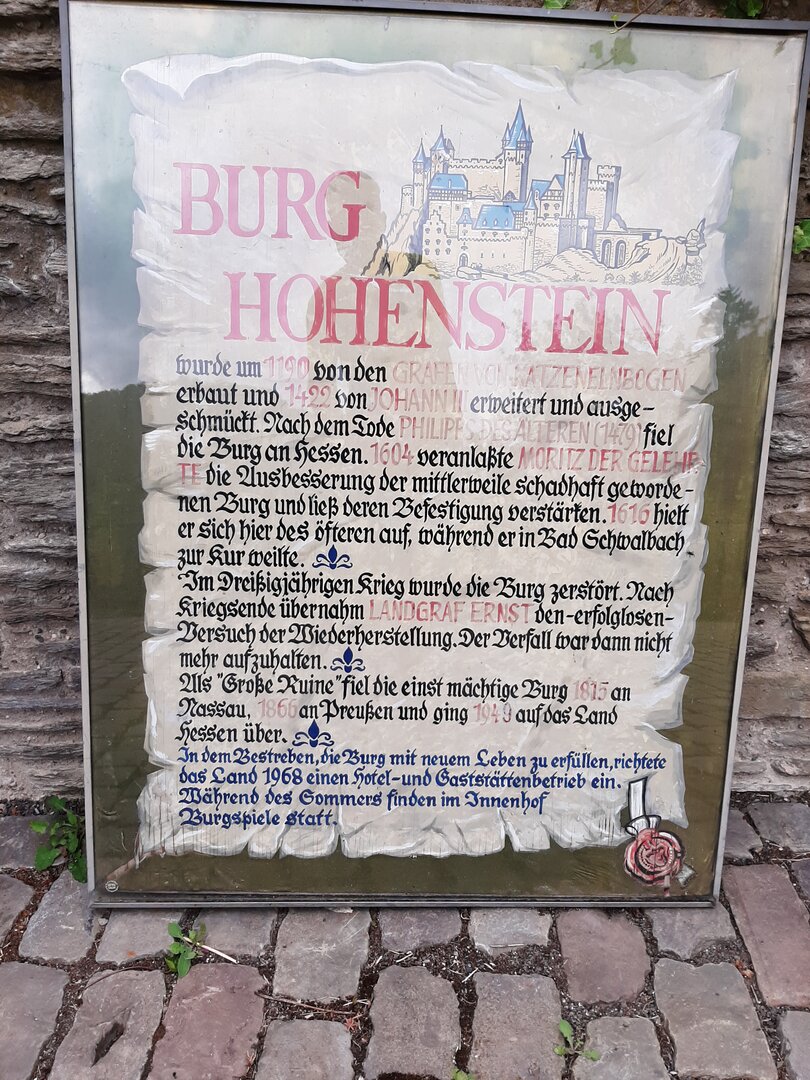 BURG
HOHENSTEIN
wurde um 1190 von den GRAFEN VON KATZENELNBOGEN
erbaut und 1422 von JOHANN II erweitert und ausge-
schmückt. Nach dem Tode PHILIPPS DES ÄLTEREN (1479) fiel
die Burg an Hessen. 1604 veranlaßte MORITZ DER GELEHR
TE die Ausbesserung der mittlerweile schadhaft geworde-
nen Burg und ließ deren Befestigung verstärken. 1616 hielt
er sich hier des öfteren auf, während er in Bad Schwalbach
zur Kur weilte.
Im Dreißigjährigen Krieg wurde die Burg zerstört. Nach
Kriegsende übernahm LANDGRAF ERNST den-erfolglosen-
Versuch der Wiederherstellung. Der Verfall war dann nicht
mehr aufzuhalten.
Als "Große Ruine" fiel die einst mächtige Burg 1815 an
Nassau, 1866 an Preußen und ging 1949 auf das Land
Hessen über.
In dem Bestreben, die Burg mit neuem Leben zu erfüllen, richtete
das Land 1968 einen Hotel-und Gaststättenbetrieb ein.
Während des Sommers finden im Innenhof
Burgspiele statt.